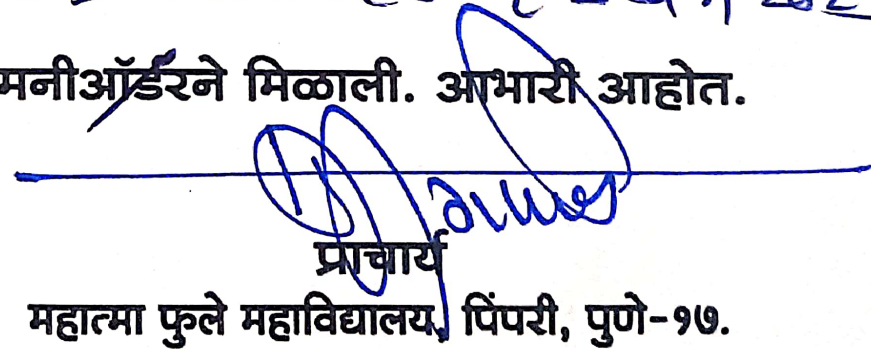 मनीऑर्डरने मिळाली. आभारी आहोत.
प्राचार्य
महात्मा फुले महाविद्यालय, पिंपरी, पुणे-१७.